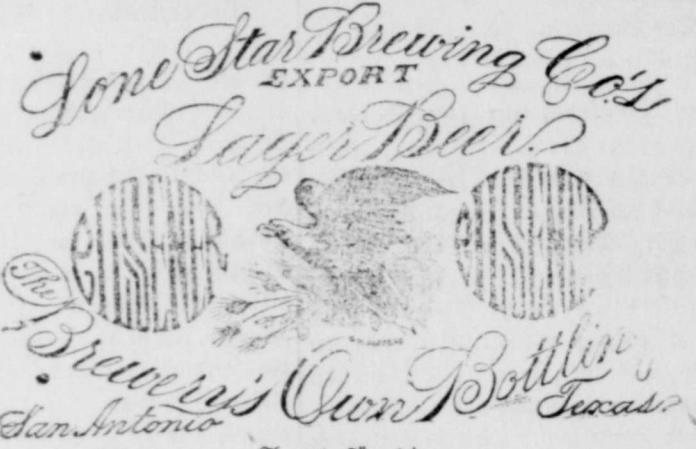 Lone Star Brewing Co's
EXPORT
Lager Beer
The
Brewery's Own Bottlin
San Antonio
Texas